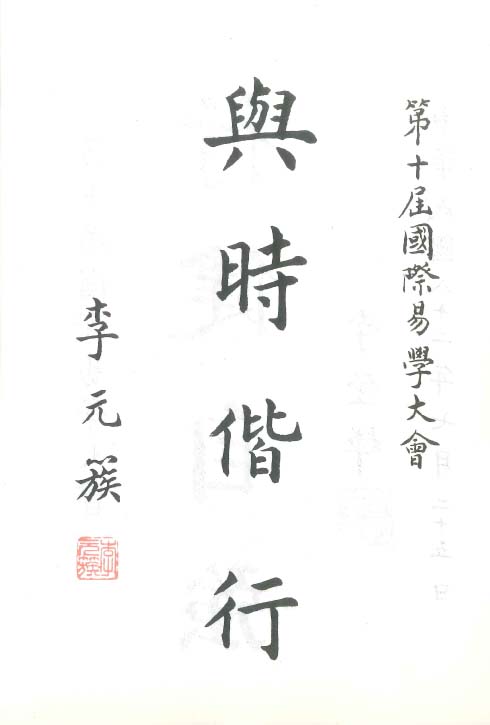 第十屆國際易學大會
與時偕行
李元簇
李元簇